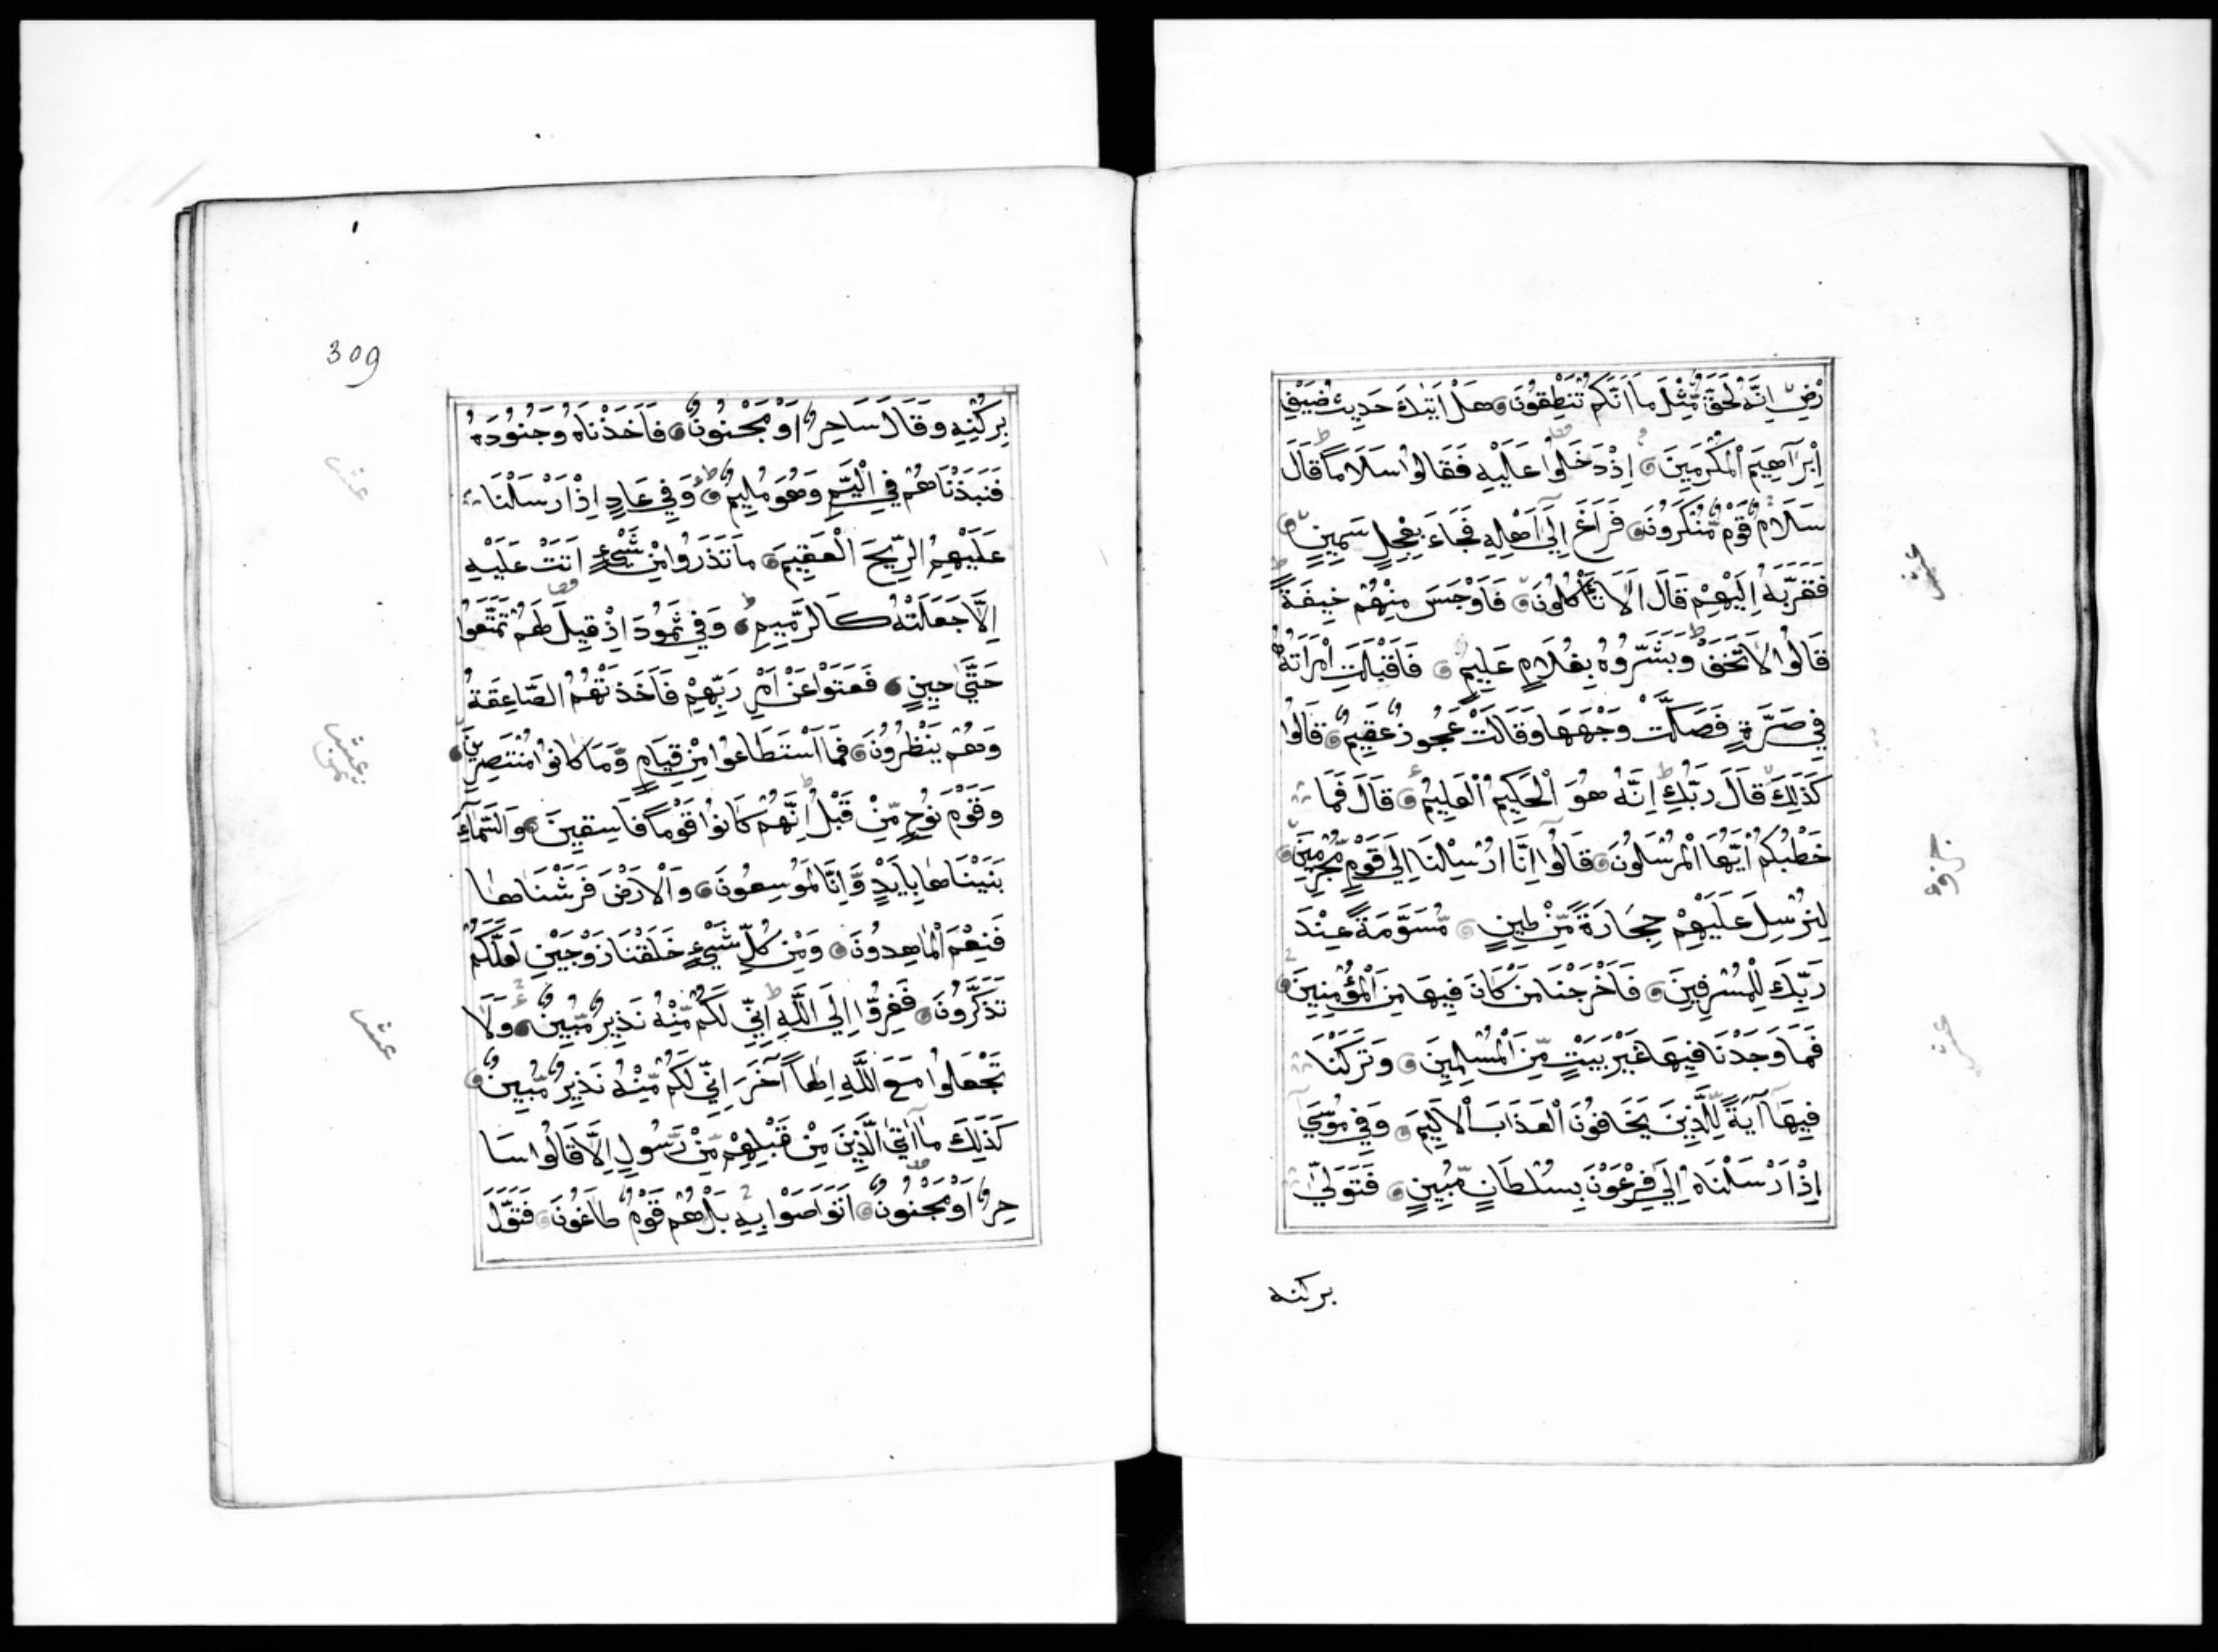 رْضِ اِنَّهُ لَحَقٌّ مِّثْلَ مَا اَنَّكُمْ تَنْطِقُوْنَ هَلْ اَتٰىكَ حَدِيثُ ضَيْفِ
اِبْرَاهِيمَ الْمُكْرَمِينَ اِذْ دَخَلُوا عَلَيْهِ فَقَالُوا سَلَامًا قَالَ
سَلَامٌ قَوْمٌ مُّنْكَرُونَ فَرَاغَ اِلَى اَهْلِهِ فَجَاءَ بِعِجْلٍ سَمِينٍ
فَقَرَّبَهُ اِلَيْهِمْ قَالَ اَلَا تَأْكُلُونَ فَاَوْجَسَ مِنْهُمْ خِيفَةً
قَالُوا لَا تَخَفْ وَبَشَّرُوهُ بِغُلَامٍ عَلِيمٍ فَاَقْبَلَتِ امْرَاَتُهُ
فِي صَرَّةٍ فَصَكَّتْ وَجْهَهَا وَقَالَتْ عَجُوزٌ عَقِيمٌ قَالُوا
كَذَلِكَ قَالَ رَبُّكِ اِنَّهُ هُوَ الْحَكِيمُ الْعَلِيمُ قَالَ فَمَا
خَطْبُكُمْ اَيُّهَا الْمُرْسَلُونَ قَالُوا اِنَّا اُرْسِلْنَا اِلَى قَوْمٍ مُّجْرِمِينَ
لِنُرْسِلَ عَلَيْهِمْ حِجَارَةً مِّنْ طِينٍ مُّسَوَّمَةً عِنْدَ
رَبِّكَ لِلْمُسْرِفِينَ فَاَخْرَجْنَا مَنْ كَانَ فِيهَا مِنَ الْمُؤْمِنِينَ
فَمَا وَجَدْنَا فِيهَا غَيْرَ بَيْتٍ مِّنَ الْمُسْلِمِينَ وَتَرَكْنَا
فِيهَا آيَةً لِّلَّذِينَ يَخَافُونَ الْعَذَابَ الْاَلِيمَ وَفِي مُوسَى
اِذْ اَرْسَلْنَاهُ اِلَى فِرْعَوْنَ بِسُلْطَانٍ مُّبِينٍ فَتَوَلَّى
بركنه
عشر
جزؤ
عشر
309
بِرُكْنِهِ وَقَالَ سَاحِرٌ اَوْ مَجْنُونٌ فَاَخَذْنَاهُ وَجُنُودَهُ
فَنَبَذْنَاهُمْ فِي الْيَمِّ وَهُوَ مُلِيمٌ وَفِي عَادٍ اِذْ اَرْسَلْنَا
عَلَيْهِمُ الرِّيحَ الْعَقِيمَ مَا تَذَرُ مِنْ شَيْءٍ اَتَتْ عَلَيْهِ
اِلَّا جَعَلَتْهُ كَالرَّمِيمِ وَفِي ثَمُودَ اِذْ قِيلَ لَهُمْ تَمَتَّعُوا
حَتَّى حِينٍ فَعَتَوْا عَنْ اَمْرِ رَبِّهِمْ فَاَخَذَتْهُمُ الصَّاعِقَةُ
وَهُمْ يَنْظُرُونَ فَمَا اسْتَطَاعُوا مِنْ قِيَامٍ وَّمَا كَانُوا مُنْتَصِرِينَ
وَقَوْمَ نُوحٍ مِّنْ قَبْلُ اِنَّهُمْ كَانُوا قَوْمًا فَاسِقِينَ وَالسَّمَاءَ
بَنَيْنَاهَا بِاَيْدٍ وَّاِنَّا لَمُوسِعُونَ وَالْاَرْضَ فَرَشْنَاهَا
فَنِعْمَ الْمَاهِدُونَ وَمِنْ كُلِّ شَيْءٍ خَلَقْنَا زَوْجَيْنِ لَعَلَّكُمْ
تَذَكَّرُونَ فَفِرُّوا اِلَى اللَّهِ اِنِّي لَكُمْ مِّنْهُ نَذِيرٌ مُّبِينٌ وَلَا
تَجْعَلُوا مَعَ اللَّهِ اِلٰهًا آخَرَ اِنِّي لَكُمْ مِّنْهُ نَذِيرٌ مُّبِينٌ
كَذَلِكَ مَا اَتَى الَّذِينَ مِنْ قَبْلِهِمْ مِّنْ رَّسُولٍ اِلَّا قَالُوا سَا
حِرٌ اَوْ مَجْنُونٌ اَتَوَاصَوْا بِهِ بَلْ هُمْ قَوْمٌ طَاغُونَ فَتَوَلَّ
عشر
عشر
عشر